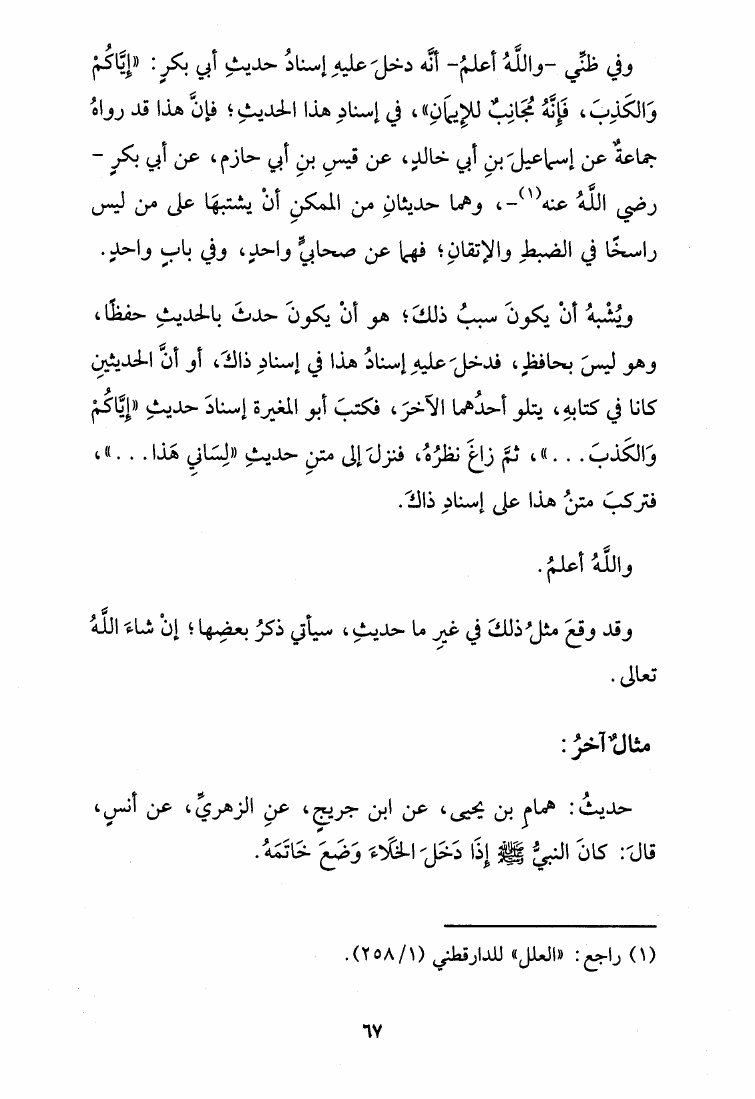 وفي ظنِّي -واللَّهُ أعلمُ- أنَّه دخلَ عليهِ إسنادُ حديثِ أبي بكرٍ: «إِيَّاكُمْ
وَالكَذِبَ، فَإِنَّهُ مُجَانِبٌ للإِيمَانِ»، في إسنادِ هذا الحديثِ؛ فإنَّ هذا قد رواهُ
جماعةٌ عن إسماعيلَ بنِ أبي خالدٍ، عن قيسِ بنِ أبي حازم، عن أبي بكرٍ -
رضي اللَّهُ عنه(١)-، وهما حديثانِ من الممكنِ أنْ يشتبهَا على من ليس
راسخًا في الضبطِ والإتقانِ؛ فهما عن صحابيٍّ واحدٍ، وفي بابٍ واحدٍ.
ويُشْبهُ أنْ يكونَ سببُ ذلكَ؛ هو أنْ يكونَ حدثَ بالحديثِ حفظًا،
وهو ليسَ بحافظٍ، فدخلَ عليهِ إسنادُ هذا في إسنادِ ذاكَ، أو أنَّ الحديثينِ
كانا في كتابهِ، يتلو أحدُهما الآخرَ، فكتبَ أبو المغيرة إسنادَ حديثِ «إِيَّاكُمْ
وَالكَذبَ...»، ثمَّ زاغَ نظرُهُ، فنزلَ إلى متنِ حديثِ «لِسَاني هَذا...»،
فتركبَ متنُ هذا على إسنادِ ذاكَ.
واللَّهُ أعلمُ.
وقد وقعَ مثلُ ذلكَ في غيرِ ما حديثِ، سيأتي ذكرُ بعضِها؛ إنْ شاءَ اللَّهُ
تعالى.
مثالٌ آخرُ:
حديثُ: همامِ بن يحيى، عن ابن جريجٍ، عنِ الزهريِّ، عن أنسٍ،
قالَ: كانَ النبيُّ ﷺ إِذَا دَخَلَ الخَلَاءَ وَضَعَ خَاتَمَهُ.
(١) راجع: «العلل» للدارقطني (٢٥٨/١).
٦٧